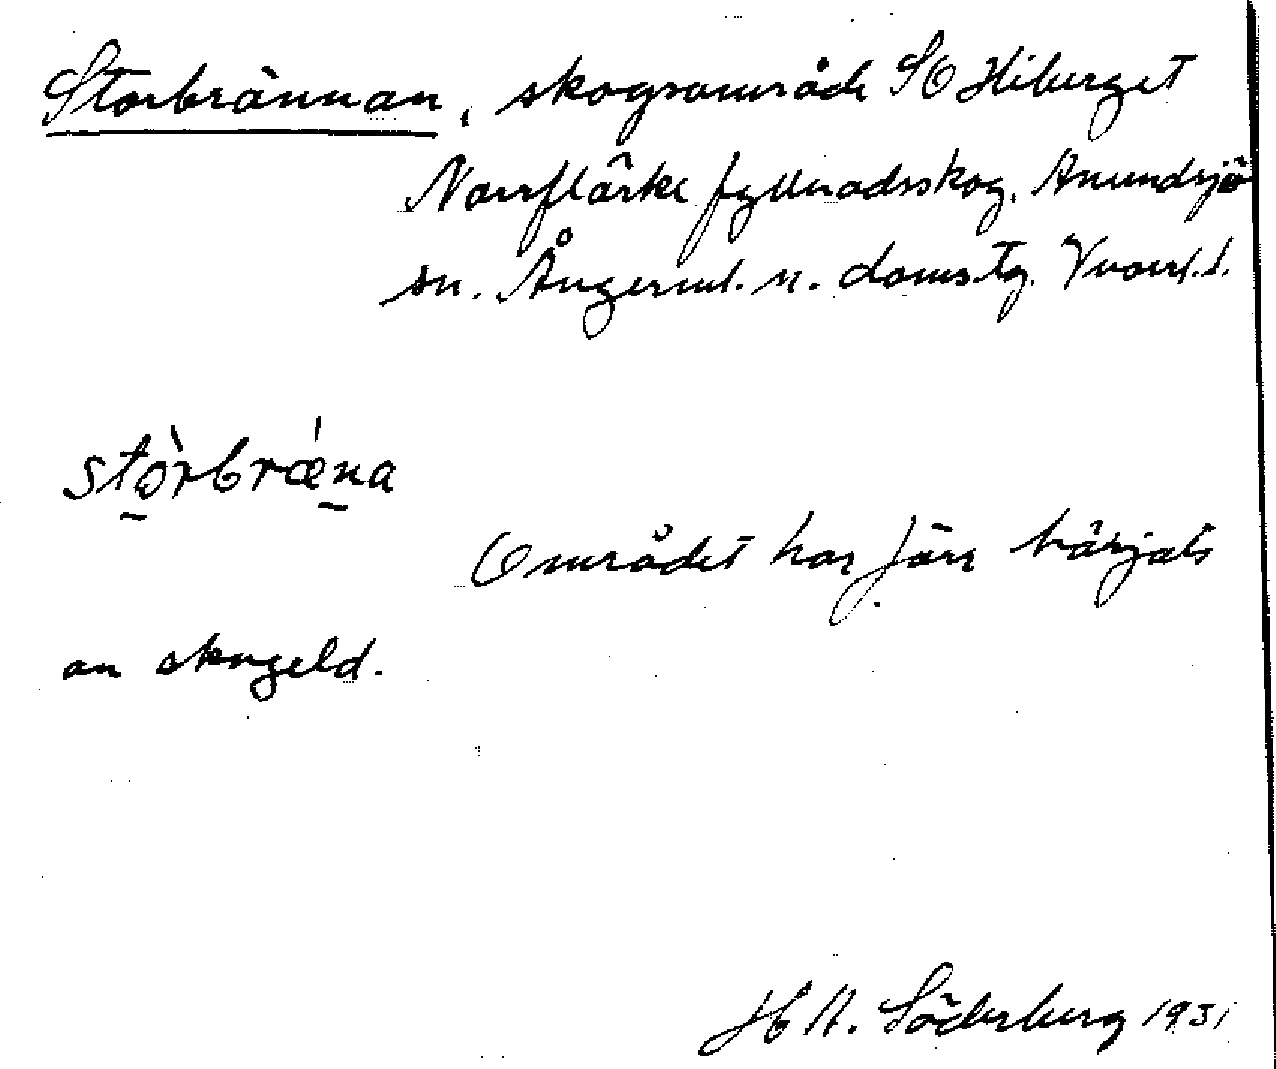 Storbrännan, skogsområde SO Hiberget
Norrflärke fyllnadsskog, Anundsjö
sn. Ångerml. n. doms.tg. Vnorrl. l.
stòrbrǽna
Området har förr härjats
av skogeld.
H A. Söderberg 1931